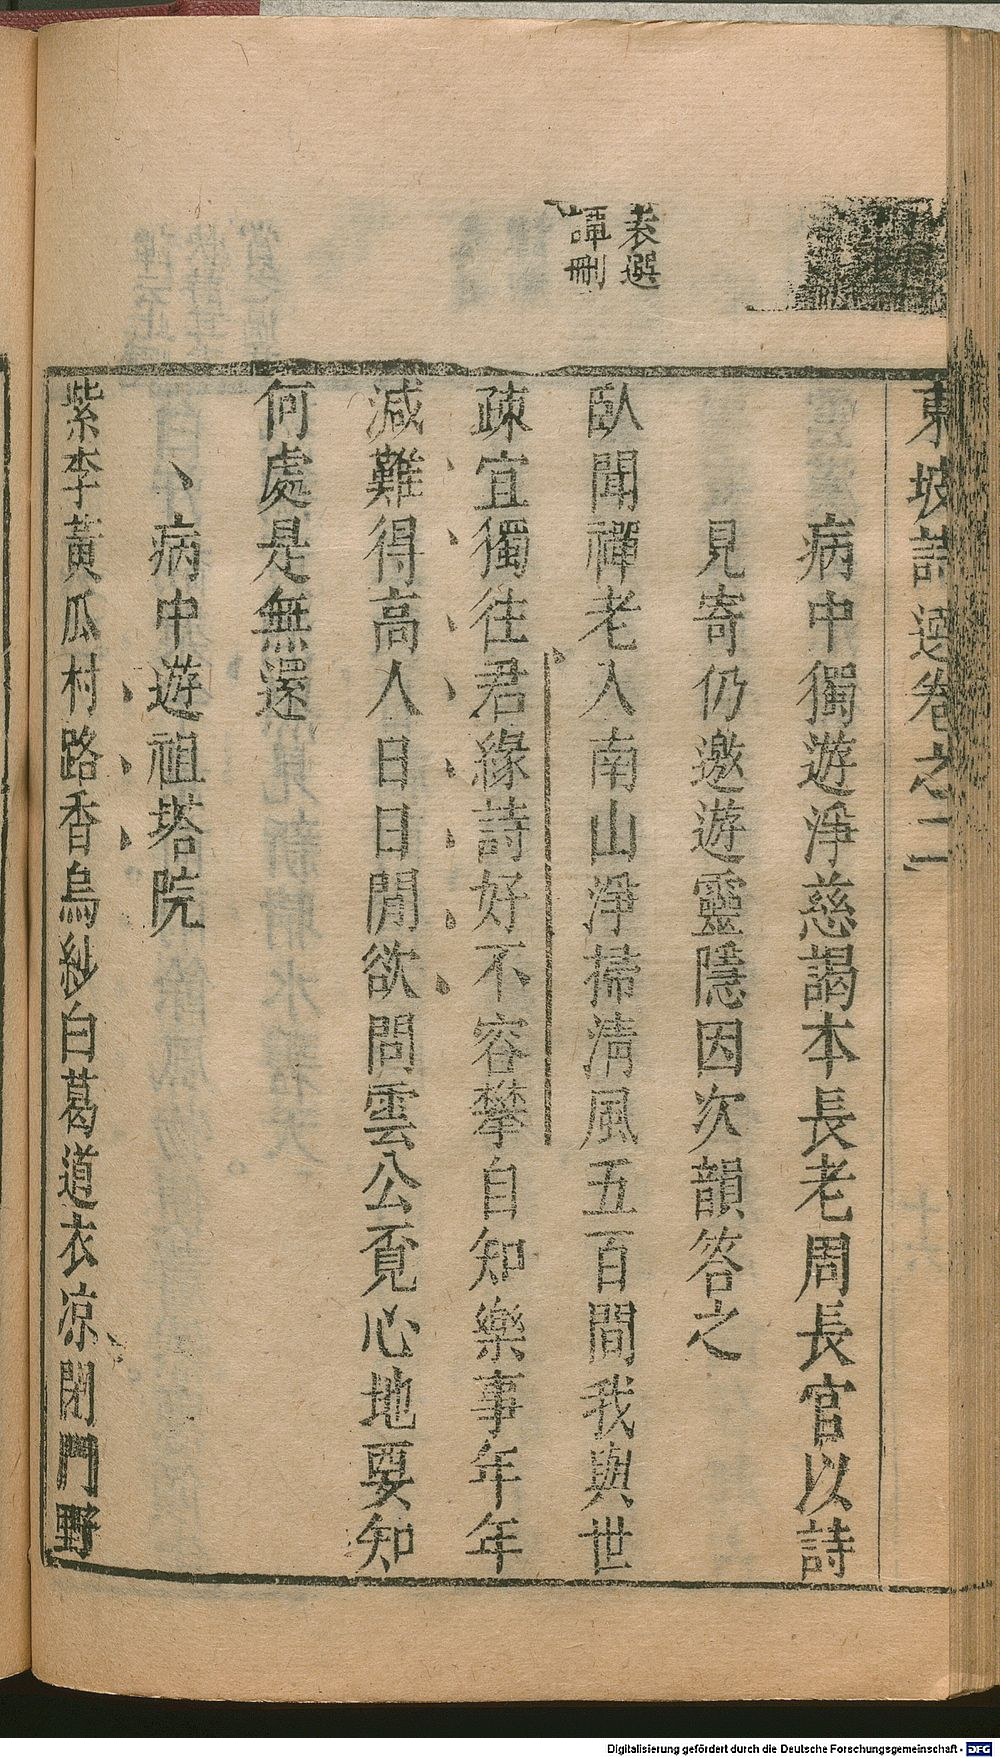 東坡詩選卷之二
病中獨遊淨慈謁本長老周長官以詩
見寄仍邀遊靈隱因次韻答之
袁選
譚刪
臥聞禪老入南山淨掃清風五百間我與世
疎宜獨往君緣詩好不容攀自知樂事年年
減難得高人日日閒欲問雲公覓心地要知
何處是無還
病中遊祖塔院
紫李黃瓜村路香烏紗白葛道衣凉閉門野
Digitalisierung gefördert durch die Deutsche Forschungsgemeinschaft - DFG